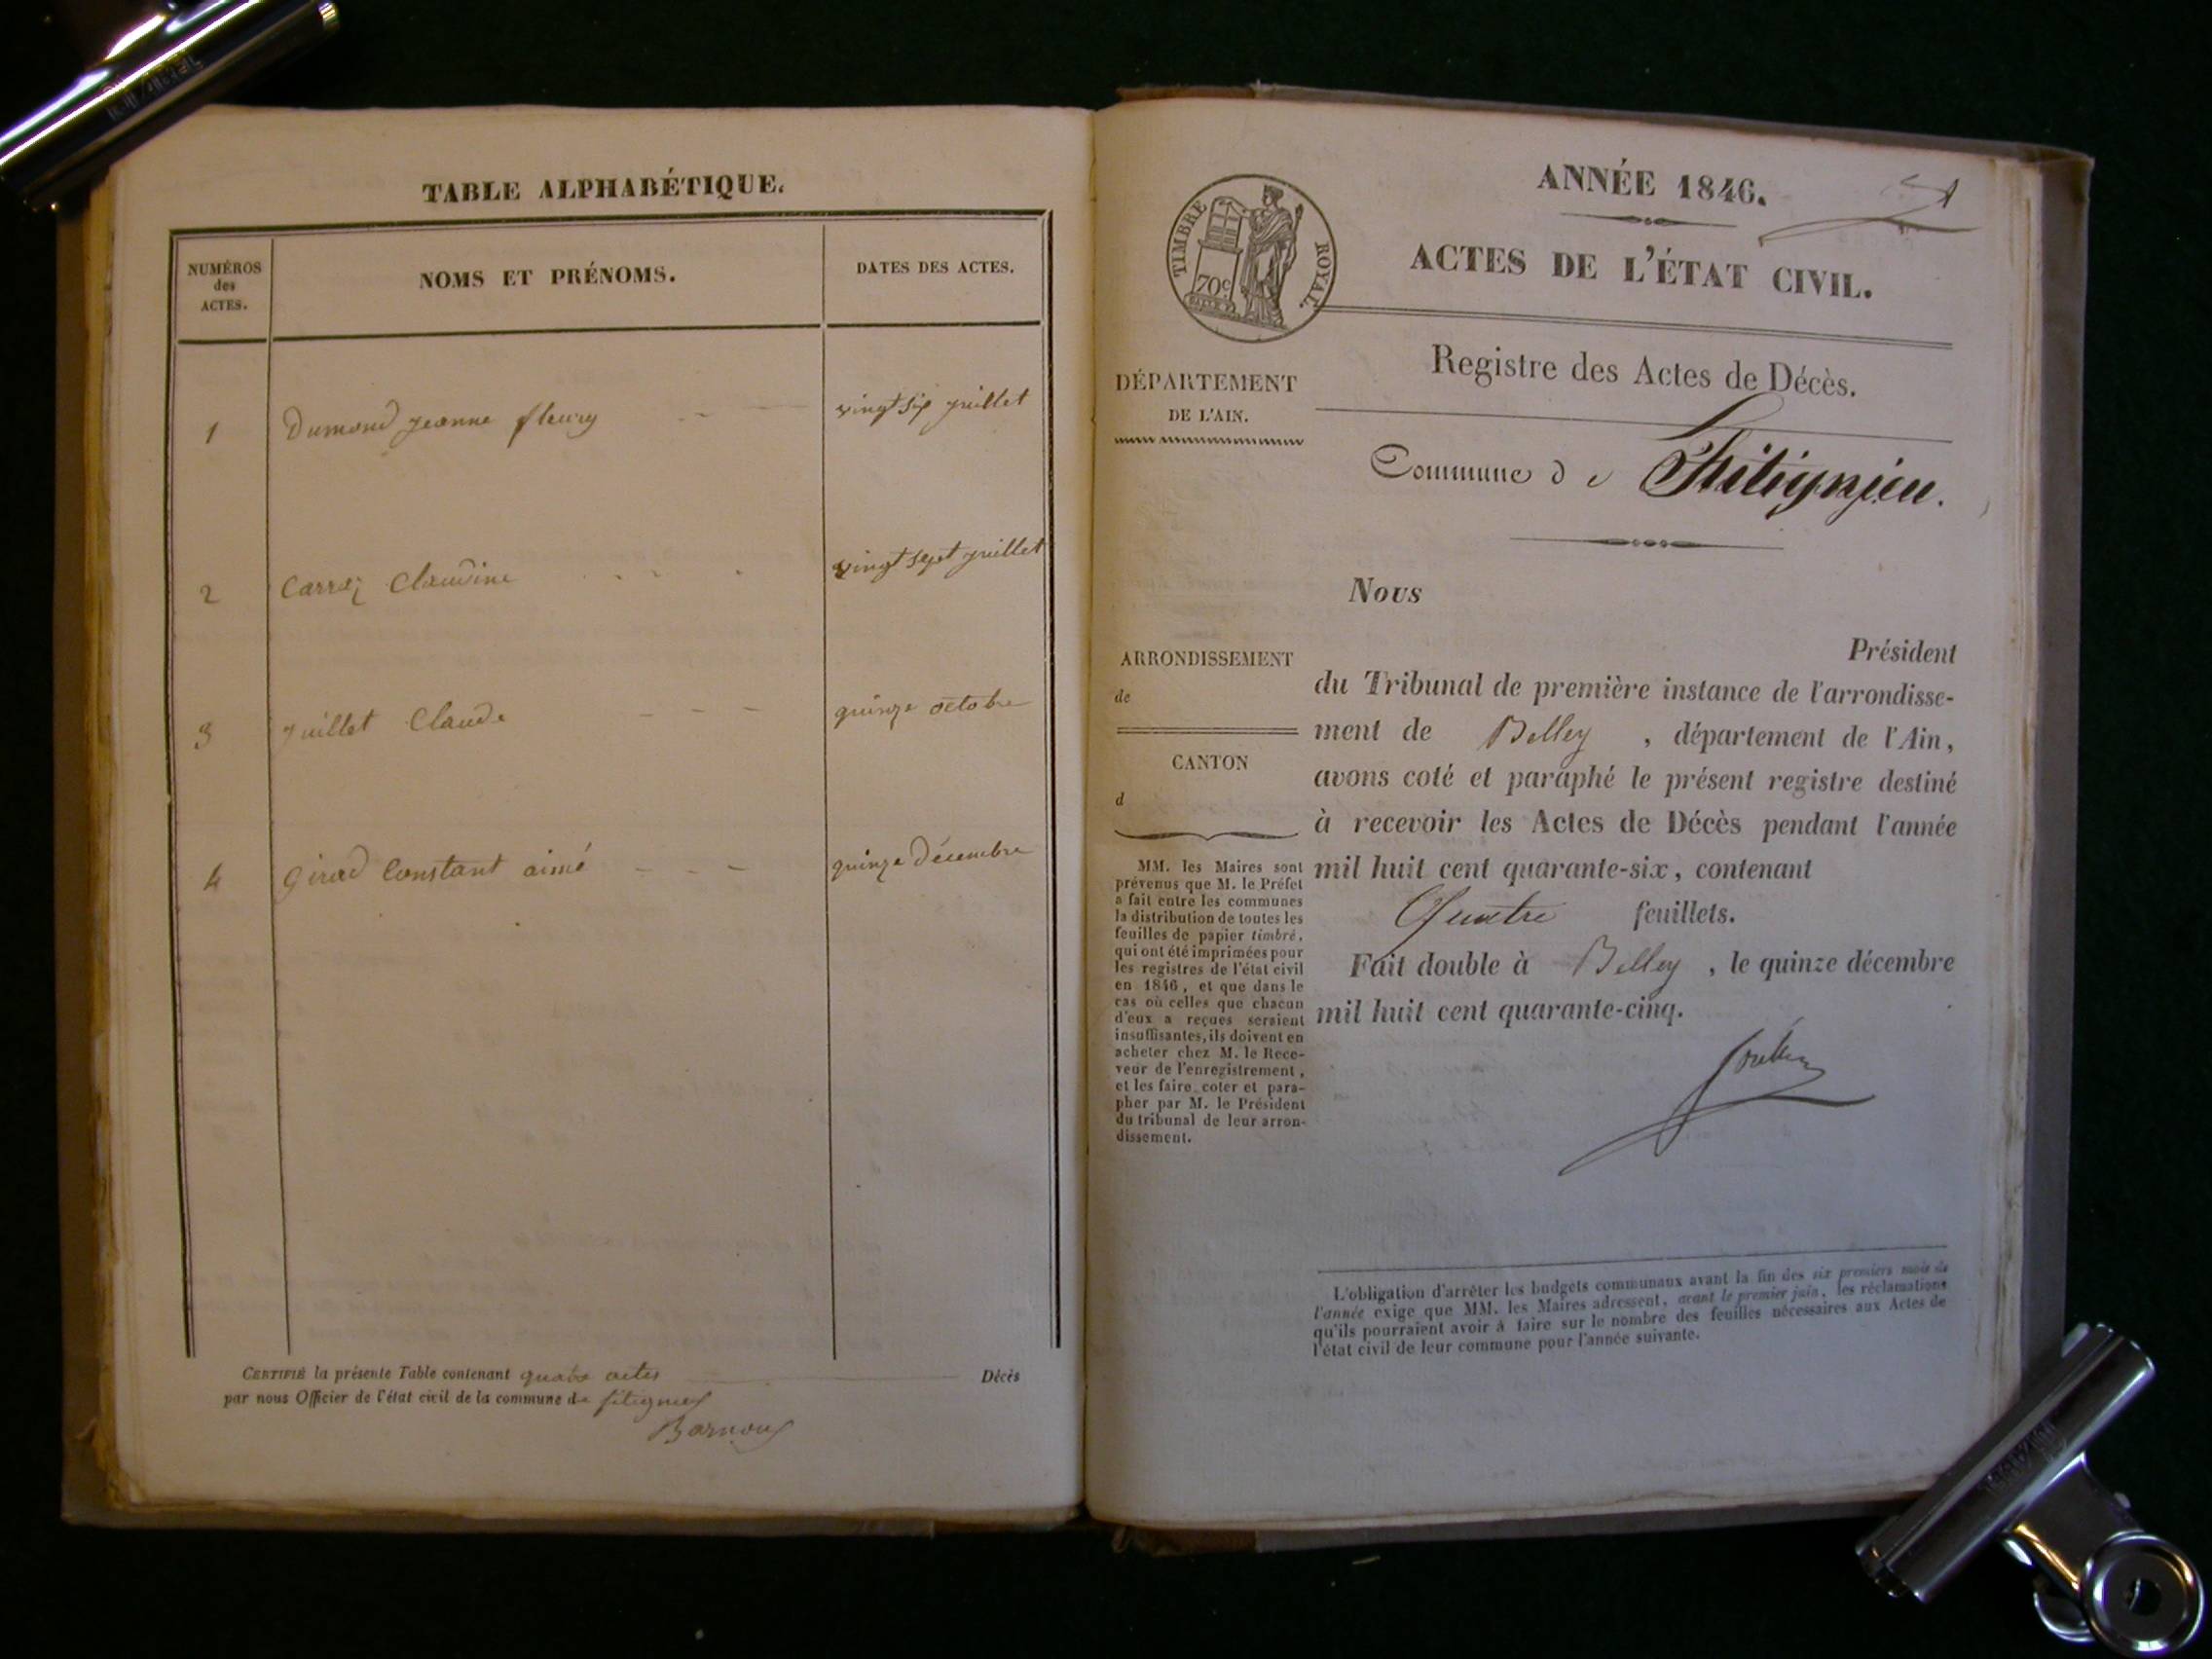 TABLE ALPHABÉTIQUE.
NUMÉROS
des
ACTES.
NOMS ET PRÉNOMS.
DATES DES ACTES.
1 Dumond jeanne fleury vingt six juillet
2 Carrez Claudine vingt sept juillet
3 juillet Claude quinze octobre
4 Girod Constant aimé quinze Décembre
CERTIFIÉ la présente Table contenant quatre actes Décès
par nous Officier de l'état civil de la commune de
TIMBRE ROYAL
70c
ANNÉE 1846.
ACTES DE L'ÉTAT CIVIL.
Registre des Actes de Décès.
DÉPARTEMENT
DE L'AIN.
Commune de
Nous
Président
du Tribunal de première instance de l'arrondisse-
ment de Belley , département de l'Ain,
avons coté et paraphé le présent registre destiné
à recevoir les Actes de Décès pendant l'année
mil huit cent quarante-six, contenant
Quatre feuillets.
Fait double à Belley , le quinze décembre
mil huit cent quarante-cinq.
ARRONDISSEMENT
de
CANTON
d
MM. les Maires sont
prévenus que M. le Préfet
a fait entre les communes
la distribution de toutes les
feuilles de papier timbré,
qui ont été imprimées pour
les registres de l'état civil
en 1846, et que dans le
cas où celles que chacun
d'eux a reçues seraient
insuffisantes, ils doivent en
acheter chez M. le Rece-
veur de l'enregistrement,
et les faire coter et para-
pher par M. le Président
du tribunal de leur arron-
dissement.
L'obligation d'arrêter les budgets communaux avant la fin des six premiers mois de
l'année exige que MM. les Maires adressent, avant le premier juin, les réclamations
qu'ils pourraient avoir à faire sur le nombre des feuilles nécessaires aux Actes de
l'état civil de leur commune pour l'année suivante.